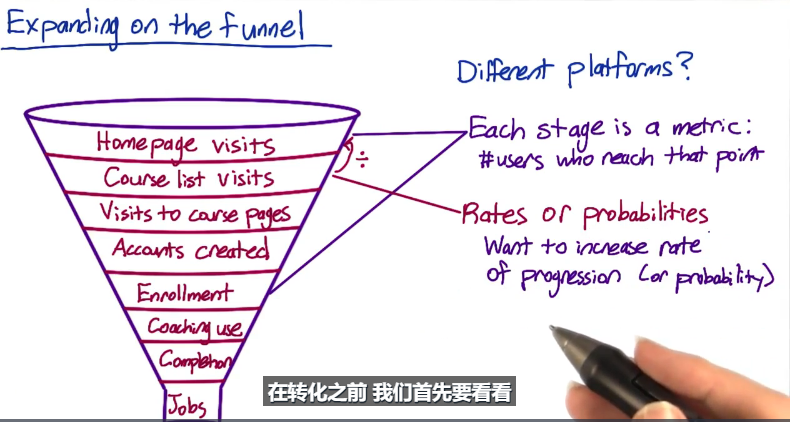 Expanding on the funnel
Different platforms?
Homepage visits
Course list visits
Visits to course pages
Accounts created
Enrollment
Coaching use
Completion
Jobs
÷
Each stage is a metric:
#users who reach that point
Rates or probabilities
Want to increase rate
of progression (or probability)
在转化之前 我们首先要看看